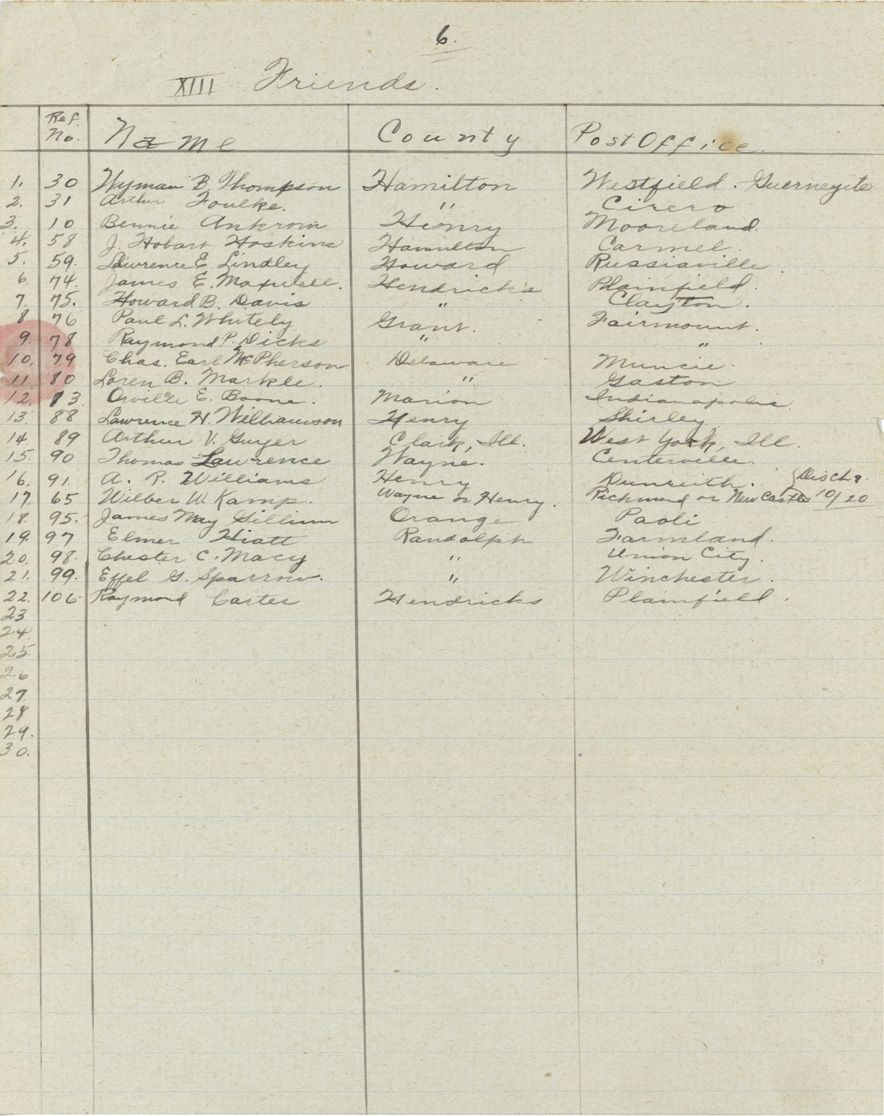 6.
XIII Friends.
Ref. No. Name County Post Office.
1. 30 Wyman B. Thompson Hamilton Westfield. Guerneyite
2. 31 Arthur Foulke. " Cicero
3. 10 Bennie Ankrom Henry Mooreland.
4. 58 J. Hobart Hoskins Hamilton Carmel.
5. 59. Lawrence E. Lindley Howard Russiaville.
6. 74. James E. Maxwell. Hendricks Plainfield.
7. 75. Howard B. Davis " Clayton.
8 76 Paul L. Whitely Grant. Fairmount.
9. 78 Raymond P. Dicks " "
10. 79 Chas. Earl McPherson Delaware Muncie.
11 80 Loren B. Markle. " Gaston
12. 83 Orville E. Boone. Marion Indianapolis.
13. 88 Lawrence H. Williamson Henry Shirley
14. 89 Arthur V. Guyer Clark, Ill. West York, Ill.
15. 90 Thomas Lawrence Wayne. Centerville.
16. 91. A. R. Williams Henry Dunreith.
17. 65 Wilber W. Kamp. Wayne or Henry. Richmond or New Castle 10/20
18. 95. James May Gillium Orange Paoli
19. 97 Elmer Hiatt Randolph Farmland.
20. 98. Chester C. Macy " Union City.
21. 99. Effel G. Sparrow. " Winchester.
22. 106 Raymond Carter Hendricks Plainfield.
23
24.
25.
26
27.
28
29.
30.